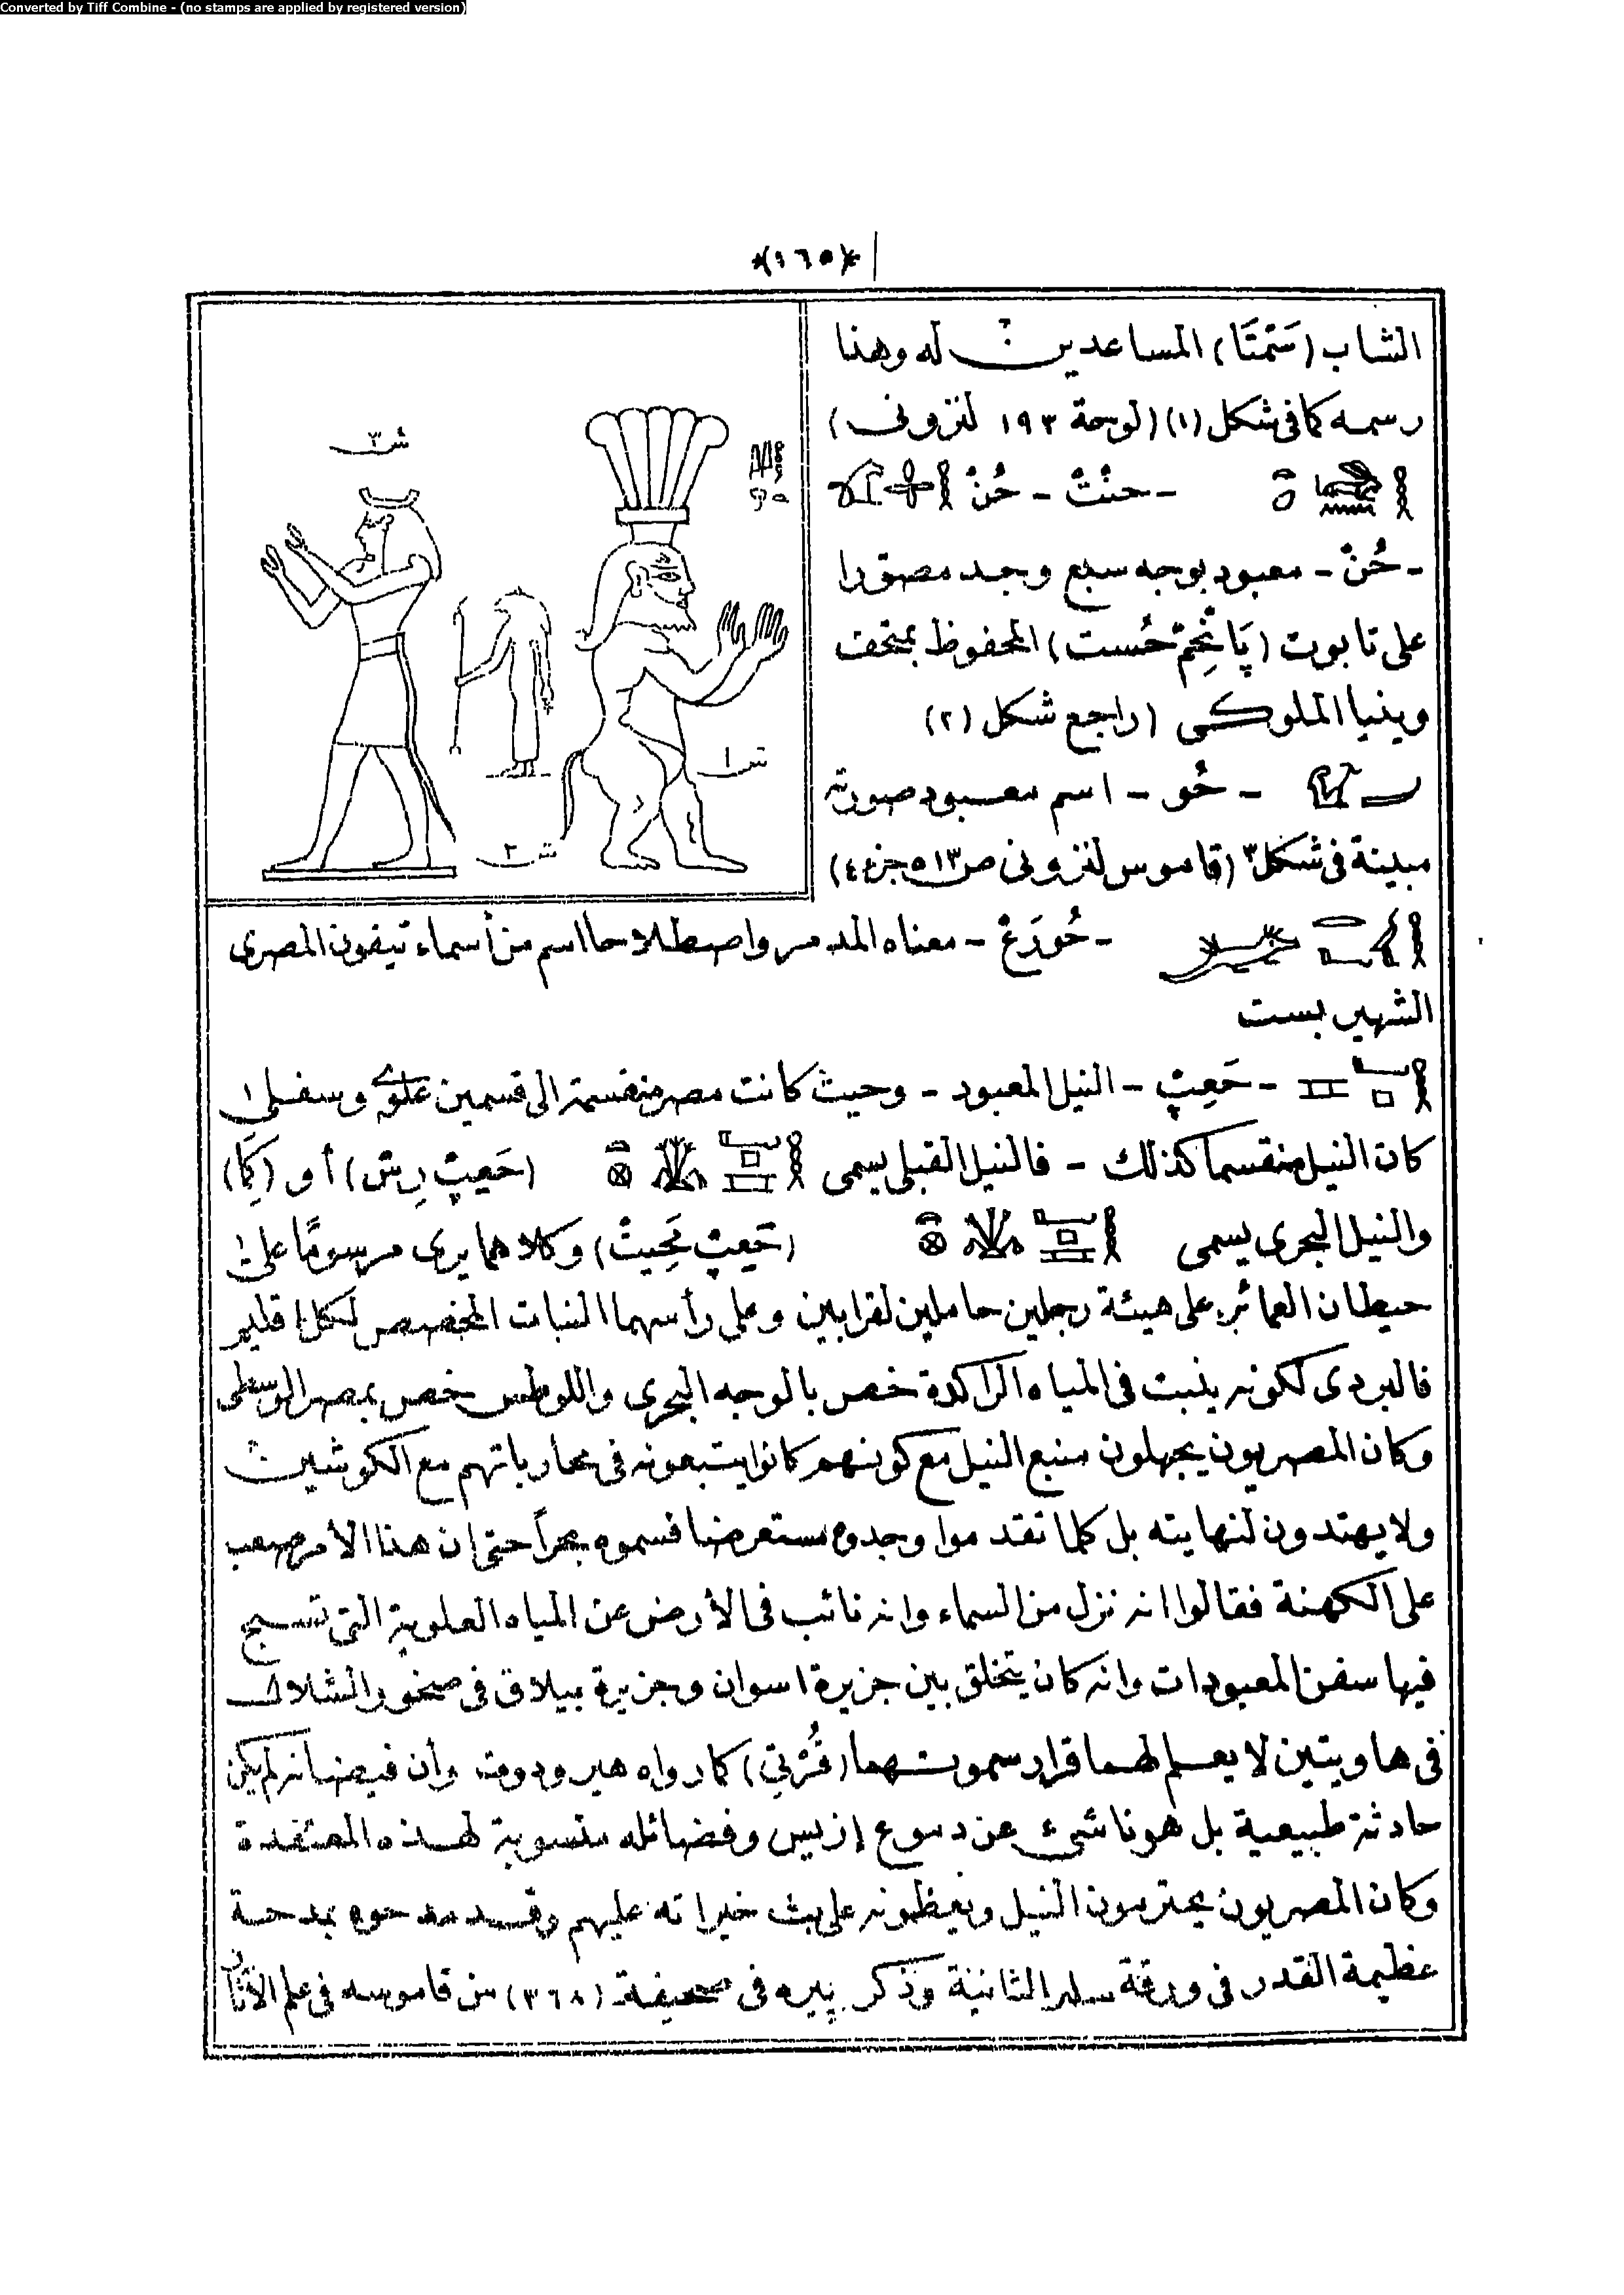 Converted by Tiff Combine - (no stamps are applied by registered version)
*(١٦٥)*
الشاب (سَمْتَا) المساعدين له وهذا
رسمه كما فى شكل (١) (لوحة ١٩٣ لنزونى)
- حنْتْ - حُنْ
- حُنْ - معبود بوجه سبع وجد مصوّرا
على تابوت (پَانْحِمْ حُست) المحفوظ بمتحف
وينيا الملوكى (راجع شكل (٢)
- حُو - اسم معبود صورته
مبينة فى شكل ٣ (قاموس لنزونى ص ٥١٣ جزء ٤)
ش ٣
ش ١
ش ٢
- حُورَعْ - معناه المدمر واصطلاحا اسم من أسماء تيفون المصرى
الشهير بست
- حَعِپْ - النيل المعبود - وحيث كانت مصر منقسمة الى قسمين علوى وسفلى
كان النيل منقسما كذلك - فالنيل القبلى يسمى (حَعِپْ رِسْ) أو (كِمَا)
والنيل البحرى يسمى (حَعِپْ مَحِيتْ) وكلاهما يرى مرسومًا على
حيطان العمائر على هيئة رجلين حاملين لقرابين وعلى رأسهما النبات المخصص لكل اقليم
فالبردى لكونه ينبت فى المياه الراكدة خص بالوجه البحرى واللوطس خص بمصر الوسطى
وكان المصريون يجهلون منبع النيل مع كونهم كانوا يتبعونه فى محارباتهم مع الكوشيين
ولا يهتدون لنهايته بل كلما تقدموا وجدوه مستعرضا فسموه بحراً حتى ان هذا الأمر صعب
على الكهنة فقالوا انه نزل من السماء وانه نائب فى الأرض عن المياه العلوية التى تسبح
فيها سفن المعبودات وانه كان يتخلق بين جزيرة اسوان وجزيرة بيلاق فى صخور الشلال
فى هاويتين لا يعلم لهما قرار سموتهما (قُرْتِى) كما رواه هيرودوت وأن فيضانه لم يكن
حادثة طبيعية بل هو ناشىء عن دموع إزيس وفضائله منسوبة لهذه المعتقدة
وكان المصريون يحترمون النيل ويعظمونه على بث خيراته عليهم وقد مدحوه بمدحة
عظيمة القدر فى ورقة سلير الثانية وذكر پيره فى صحيفة (٣٦٨) من قاموسه فى علم الآثار